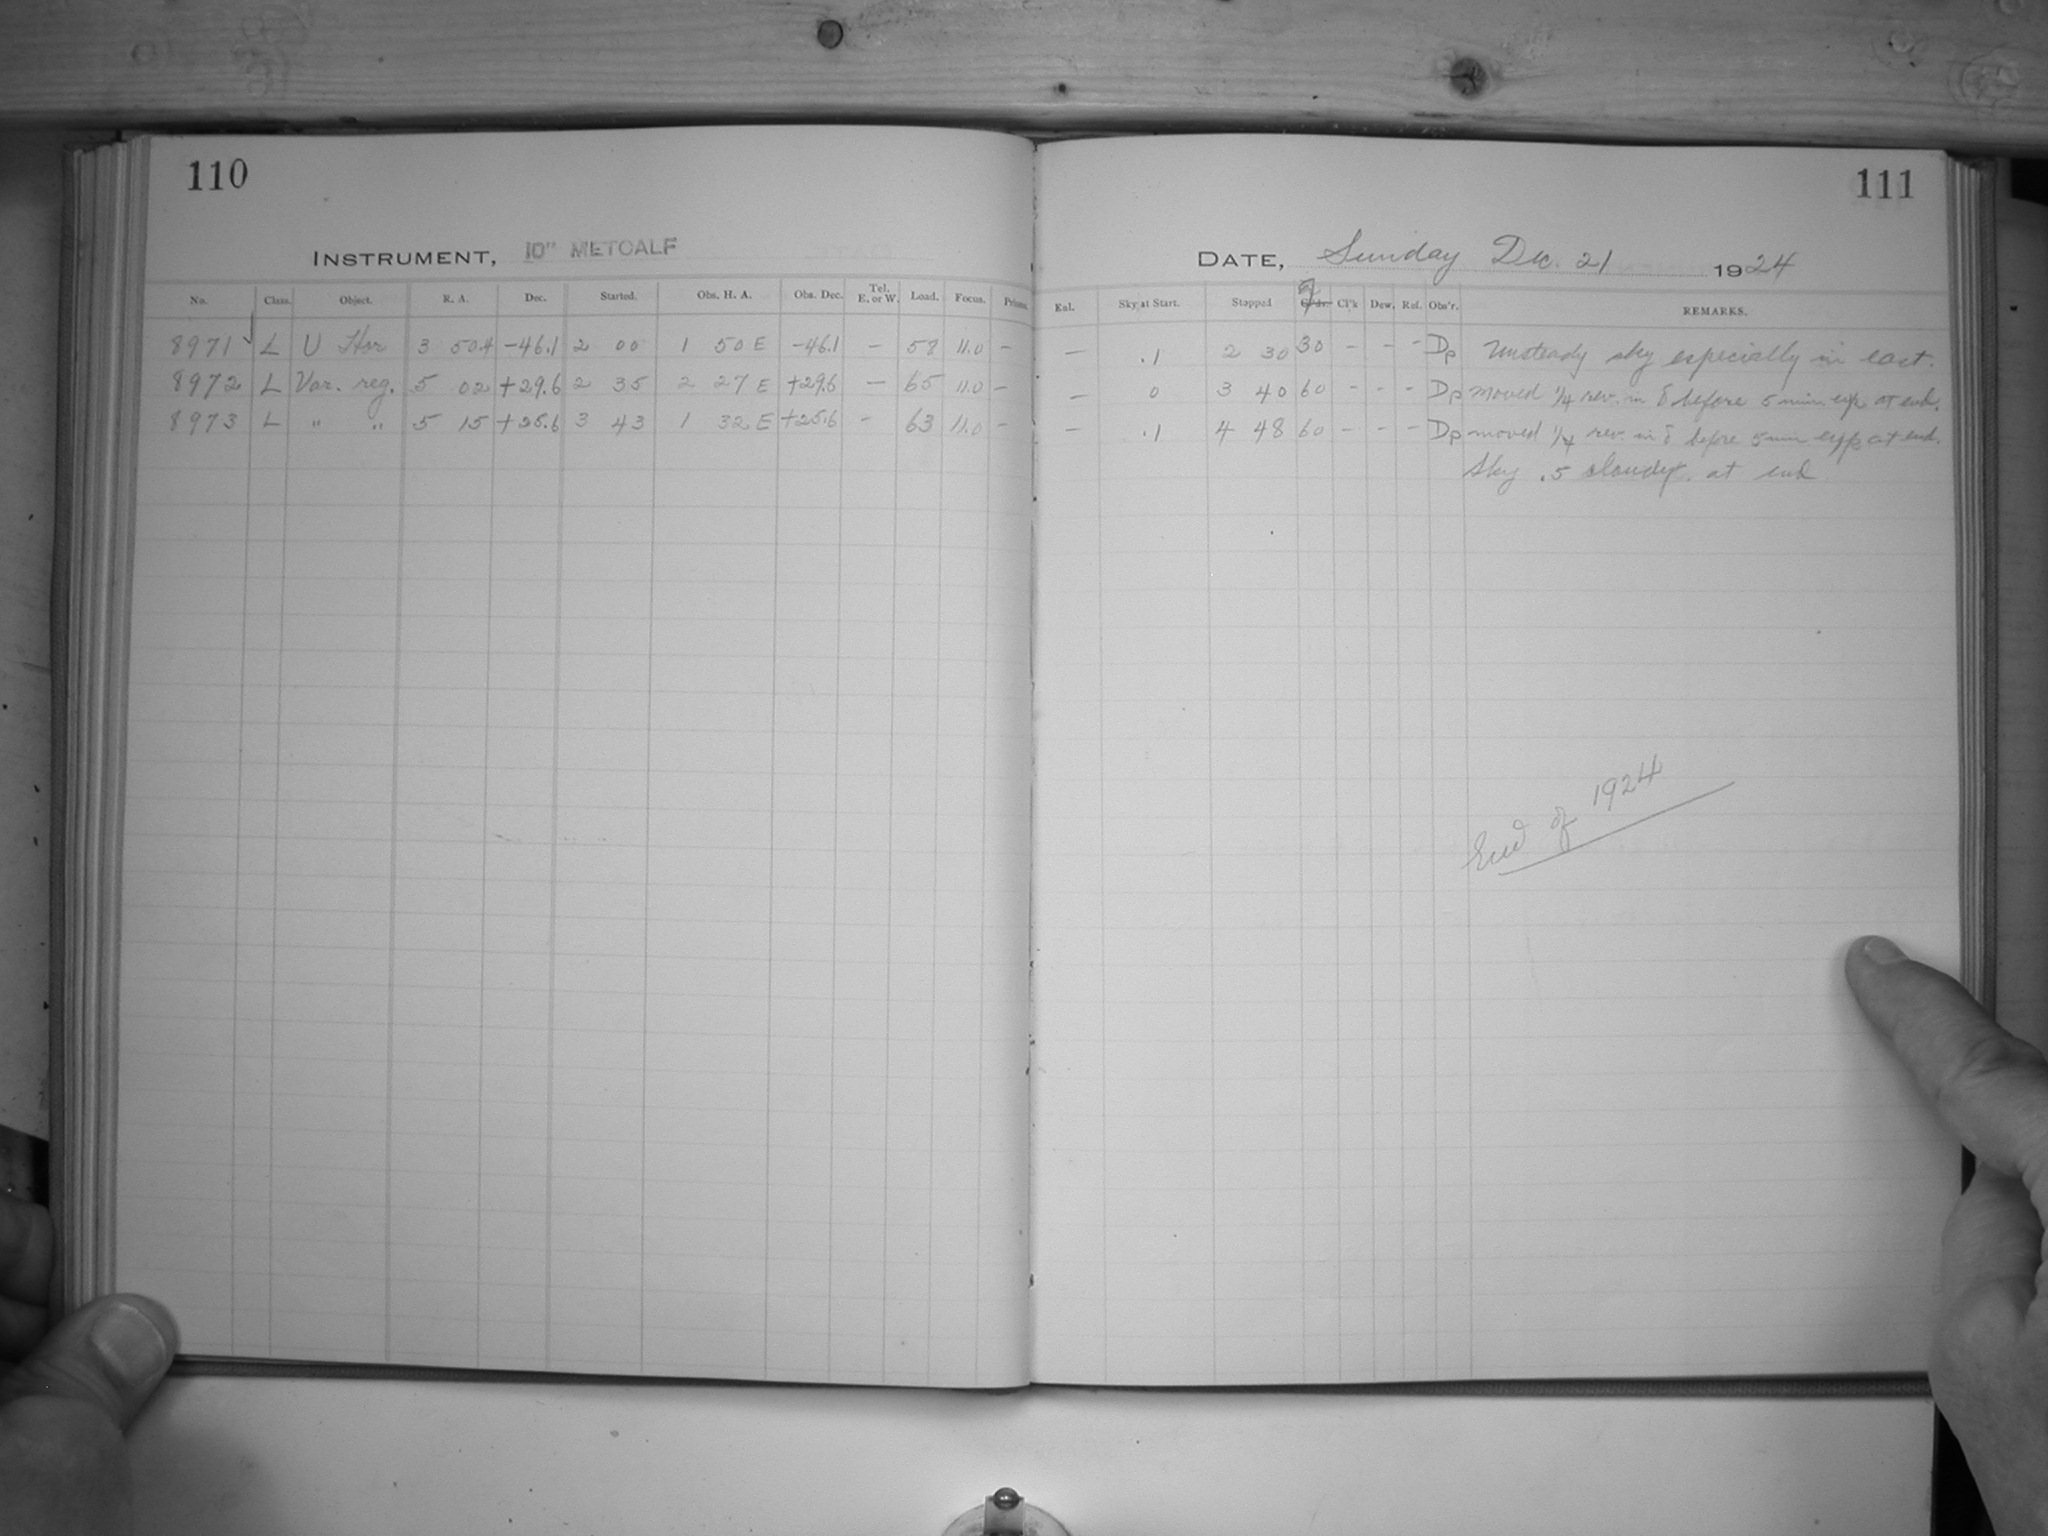 110
INSTRUMENT, 10" METCALF
No. Class. Object. R. A. Dec. Started. Obs. H. A. Obs. Dec. Tel. E. or W. Load. Focus. Prisms.
8971 L U Hor 3 50.4 -46.1 2 00 1 50 E -46.1 - 58 11.0 -
8972 L Var. reg. 5 02 +29.6 2 35 2 27 E +29.6 - 65 11.0 -
8973 L " " 5 15 +25.6 3 43 1 32 E +25.6 - 63 11.0 -
111
DATE, Sunday Dec. 21 1924
Enl. Sky at Start. Stopped Cl'k Dew. Ref. Obs'r. REMARKS.
- .1 2 30 30 - - - Dp Unsteady sky especially in east.
- 0 3 40 60 - - - Dp moved 1/4 rev. in δ before 5 min. exp at end.
- .1 4 48 60 - - - Dp moved 1/4 rev. in δ before 5 min exp at end.
Sky .5 cloudy at end
End of 1924